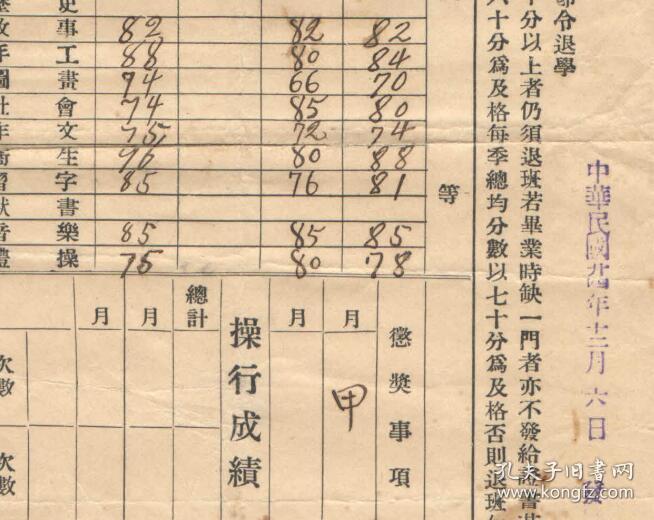 令退學
十分以上者仍須退班若畢業時缺一門者亦不發給證書
六十分爲及格每季總均分數以七十分爲及格否則退班
中華民國廿四年十二月六日
發
等
史
事 82 82 82
工 88 80 84
圖畫 74 66 70
社會 74 85 80
作文 75 72 74
衛生 96 80 88
習字 85 76 81
書
音樂 85 85 85
體操 75 80 78
月 月 總計 操行成績 月 月 懲奬事項
甲
次數
次數
孔夫子旧书网
www.kongfz.com